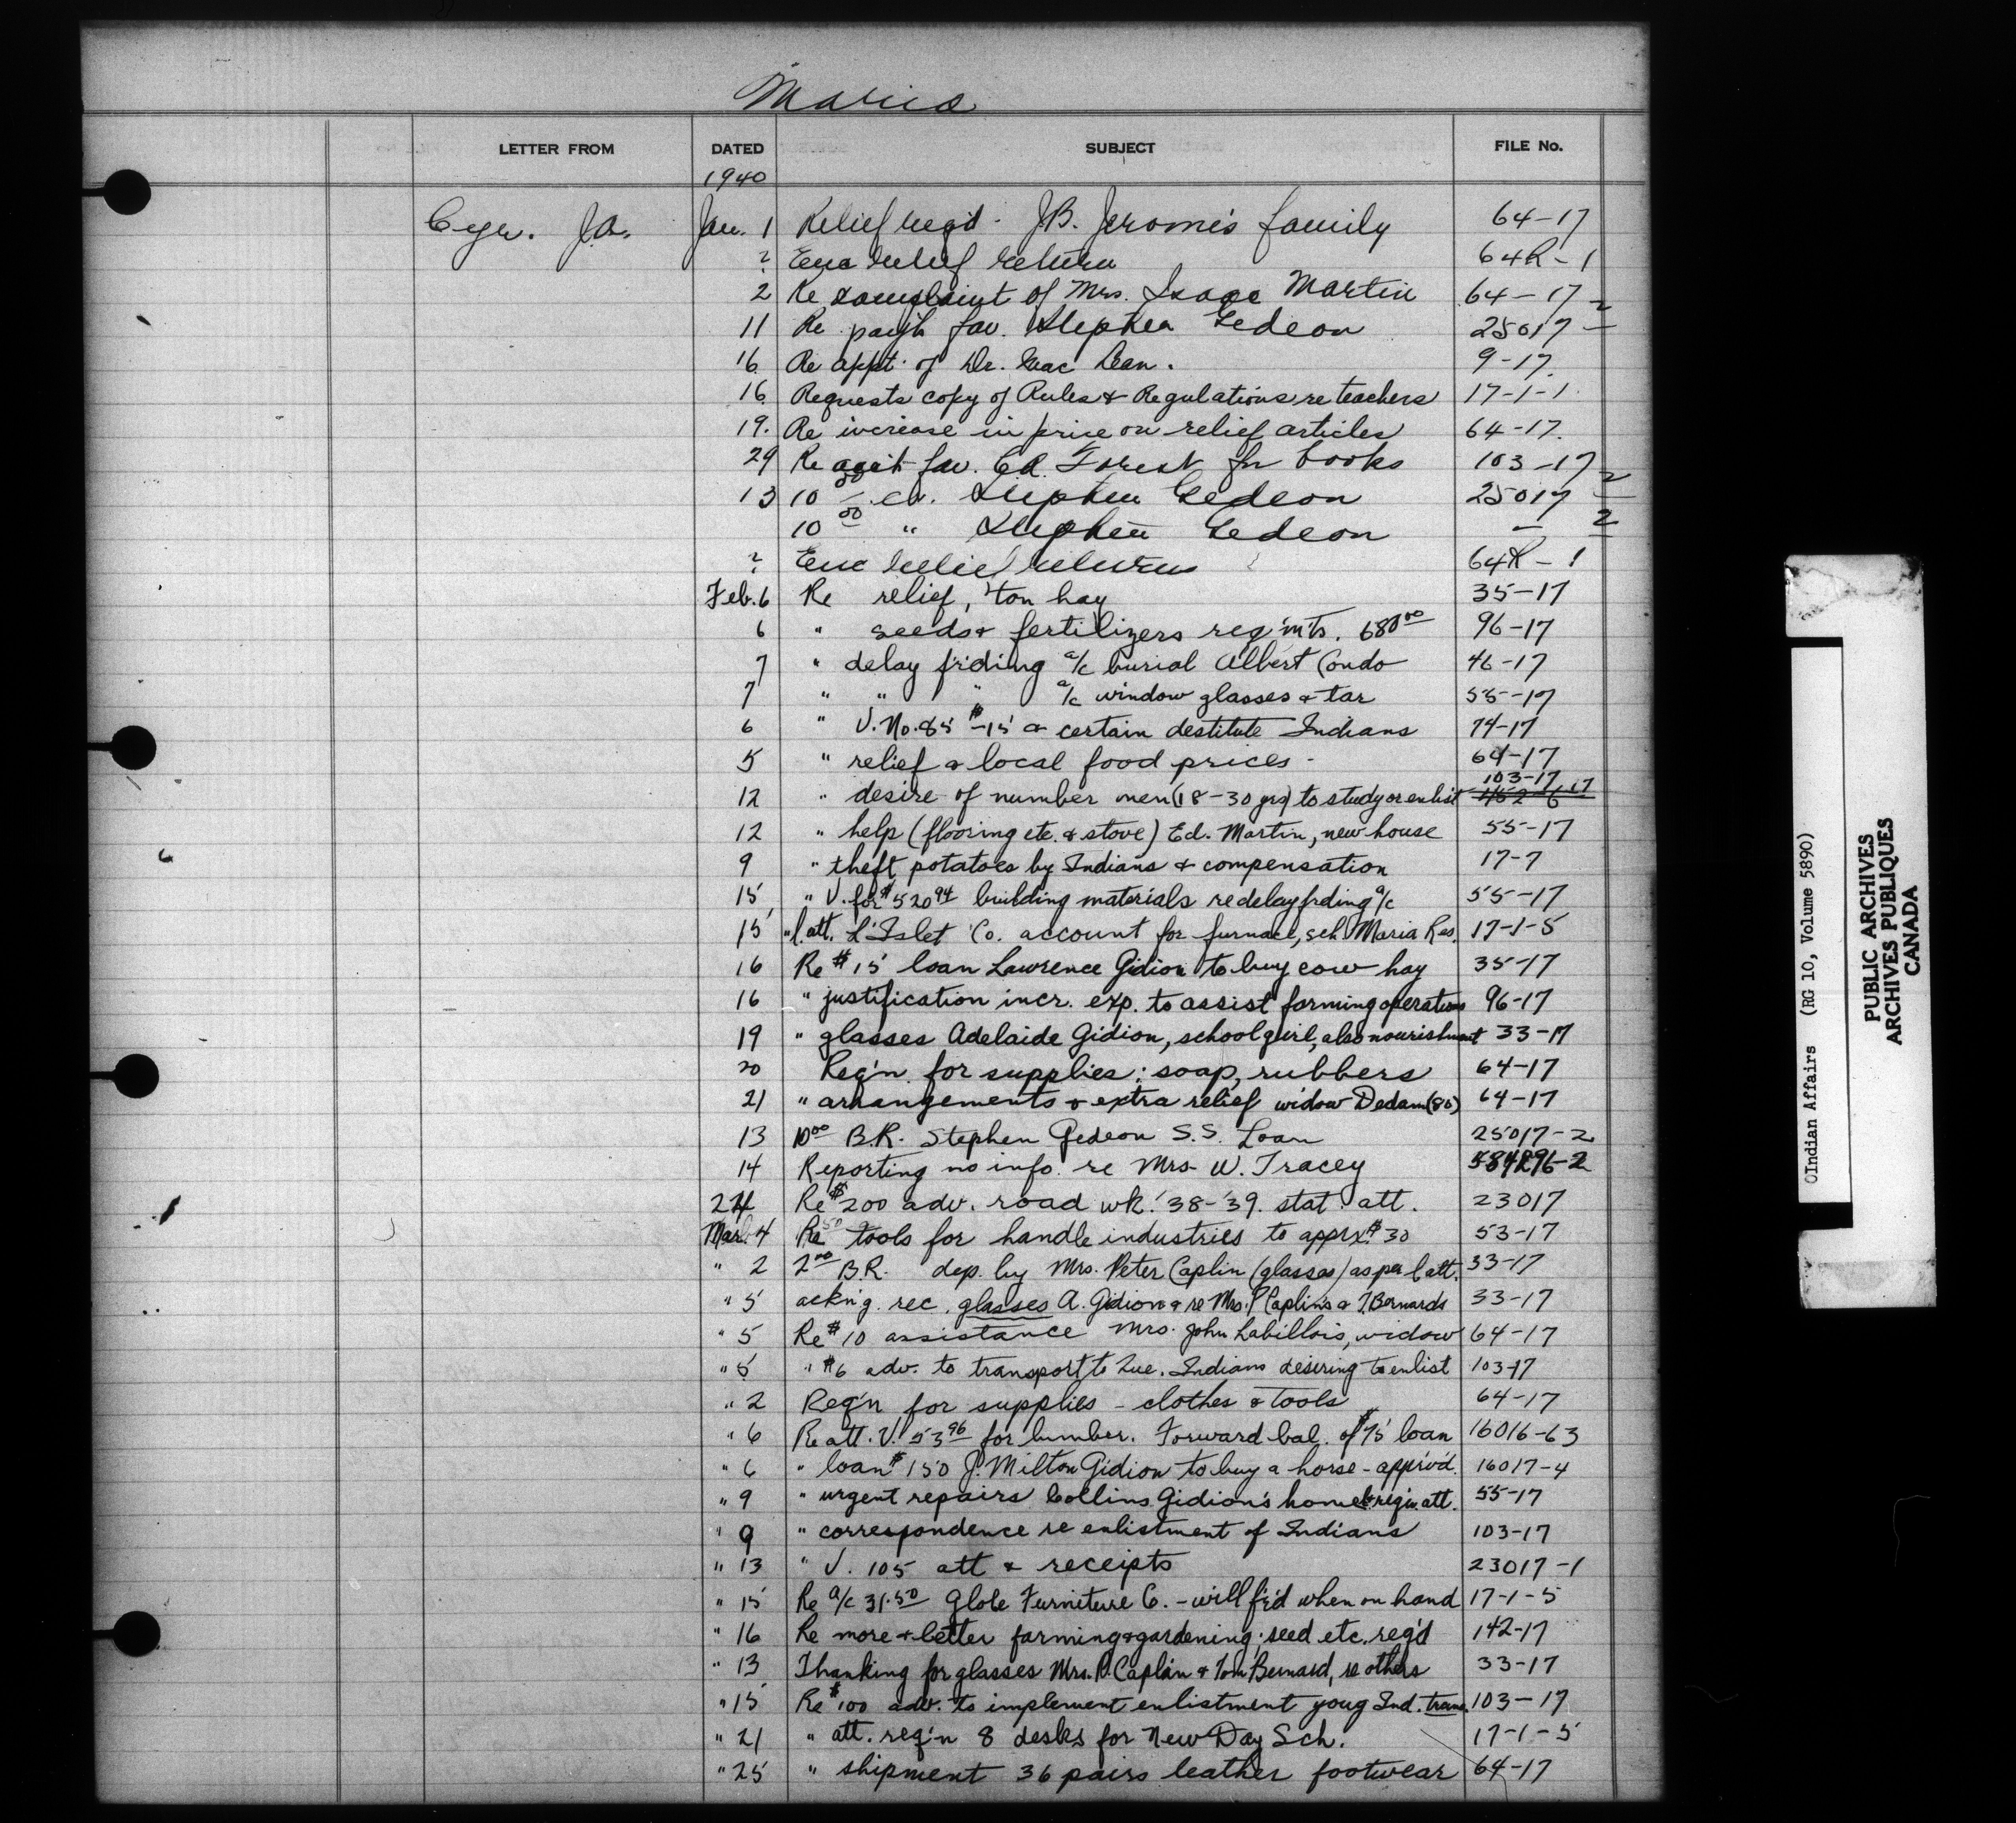 Maria
LETTER FROM DATED SUBJECT FILE No.
1940
Cyr. J.A. Jan. 1 Relief reqd. J.B. Jerome's family 64-17
? Enc relief return 64R-1
2 Re complaint of Mrs. Isaac Martin 64-17
11 Re pay't fav. Stephen Gedeon 25017-2
16 Re appt. of Dr. 9-17
16 Requests copy of Rules & Regulations re teachers 17-1-1
19. Re increase in price on relief articles 64-17.
29 Re acc't fav. Ed. Forest for books 103-17
13 10 00 Stephen Gedeon 25017-2
10 00 " Stephen Gedeon - 2
? Enc relief returns 64R-1
Feb. 6 Re relief, ton hay 35-17
6 " seeds & fertilizers req'm'ts. 680 00 96-17
7 " delay f'rding a/c burial Albert Condo 46-17
7 " " " a/c window glasses & tar 55-17
6 " V. No. 85 $-15 & certain destitute Indians 74-17
5 " relief & local food prices - 64-17
12 " desire of number men (18-30 yrs) to study or enlist 103-17
12 " help (flooring etc. & stove) Ed. Martin, new house 55-17
9 " theft potatoes by Indians & compensation 17-7
15 " V. for $520 94 building materials re delay frding a/c 55-17
15 " l. att. L'Islet Co. account for furnace, sch. Maria Res. 17-1-5
16 Re $15 loan Lawrence Gidion to buy cow hay 35-17
16 " justification incr. exp. to assist farming operations 96-17
19 " glasses Adelaide Gidion, school girl, also nourishment 33-17
20 Req'n for supplies: soap, rubbers 64-17
21 " arrangements & extra relief widow Dedam (80) 64-17
13 10 00 B.R. Stephen Gedeon S.S. Loan 25017-2
14 Reporting no info. re Mrs. W. Tracey 584R96-2
24 Re $200 adv. road wk. '38-'39. stat. att. 23017
Mar. 4 Re tools for handle industries to apprx. $30 53-17
" 2 2 00 B.R. dep. by Mrs. Peter Caplin (glasses) as per l att. 33-17
" 5 ackn'g. rec. glasses A. Gidion & re Mrs. P. Caplins & T. Bernards 33-17
" 5 Re $10 assistance Mrs. John Labillois, widow 64-17
" 5 " $6 adv. to transport to Que. Indians desiring to enlist 103-17
" 2 Req'n for supplies - clothes & tools 64-17
" 6 Re att. V. 53 96 for lumber. Forward bal. of $75 loan 16016-63
" 6 " loan $150 J. Milton Gidion to buy a horse - approv'd. 16017-4
" 9 " urgent repairs Collins Gidion's home & req'n. att. 55-17
" 9 " correspondence re enlistment of Indians 103-17
" 13 " V. 105 att & receipts 23017-1
" 15 Re a/c 31.50 Globe Furniture Co. - will f'd when on hand 17-1-5
" 16 Re more & better farming & gardening; seed etc. req'd 142-17
" 13 Thanking for glasses Mrs. P. Caplan & Tom Bernard, re others 33-17
" 15 Re $100 adv. to implement enlistment youg Ind. trans. 103-17
" 21 " att. req'n 8 desks for New Day Sch. 17-1-5
" 25 " shipment 36 pairs leather footwear 64-17
OIndian Affairs (RG 10, Volume 5890)
PUBLIC ARCHIVES
ARCHIVES PUBLIQUES
CANADA